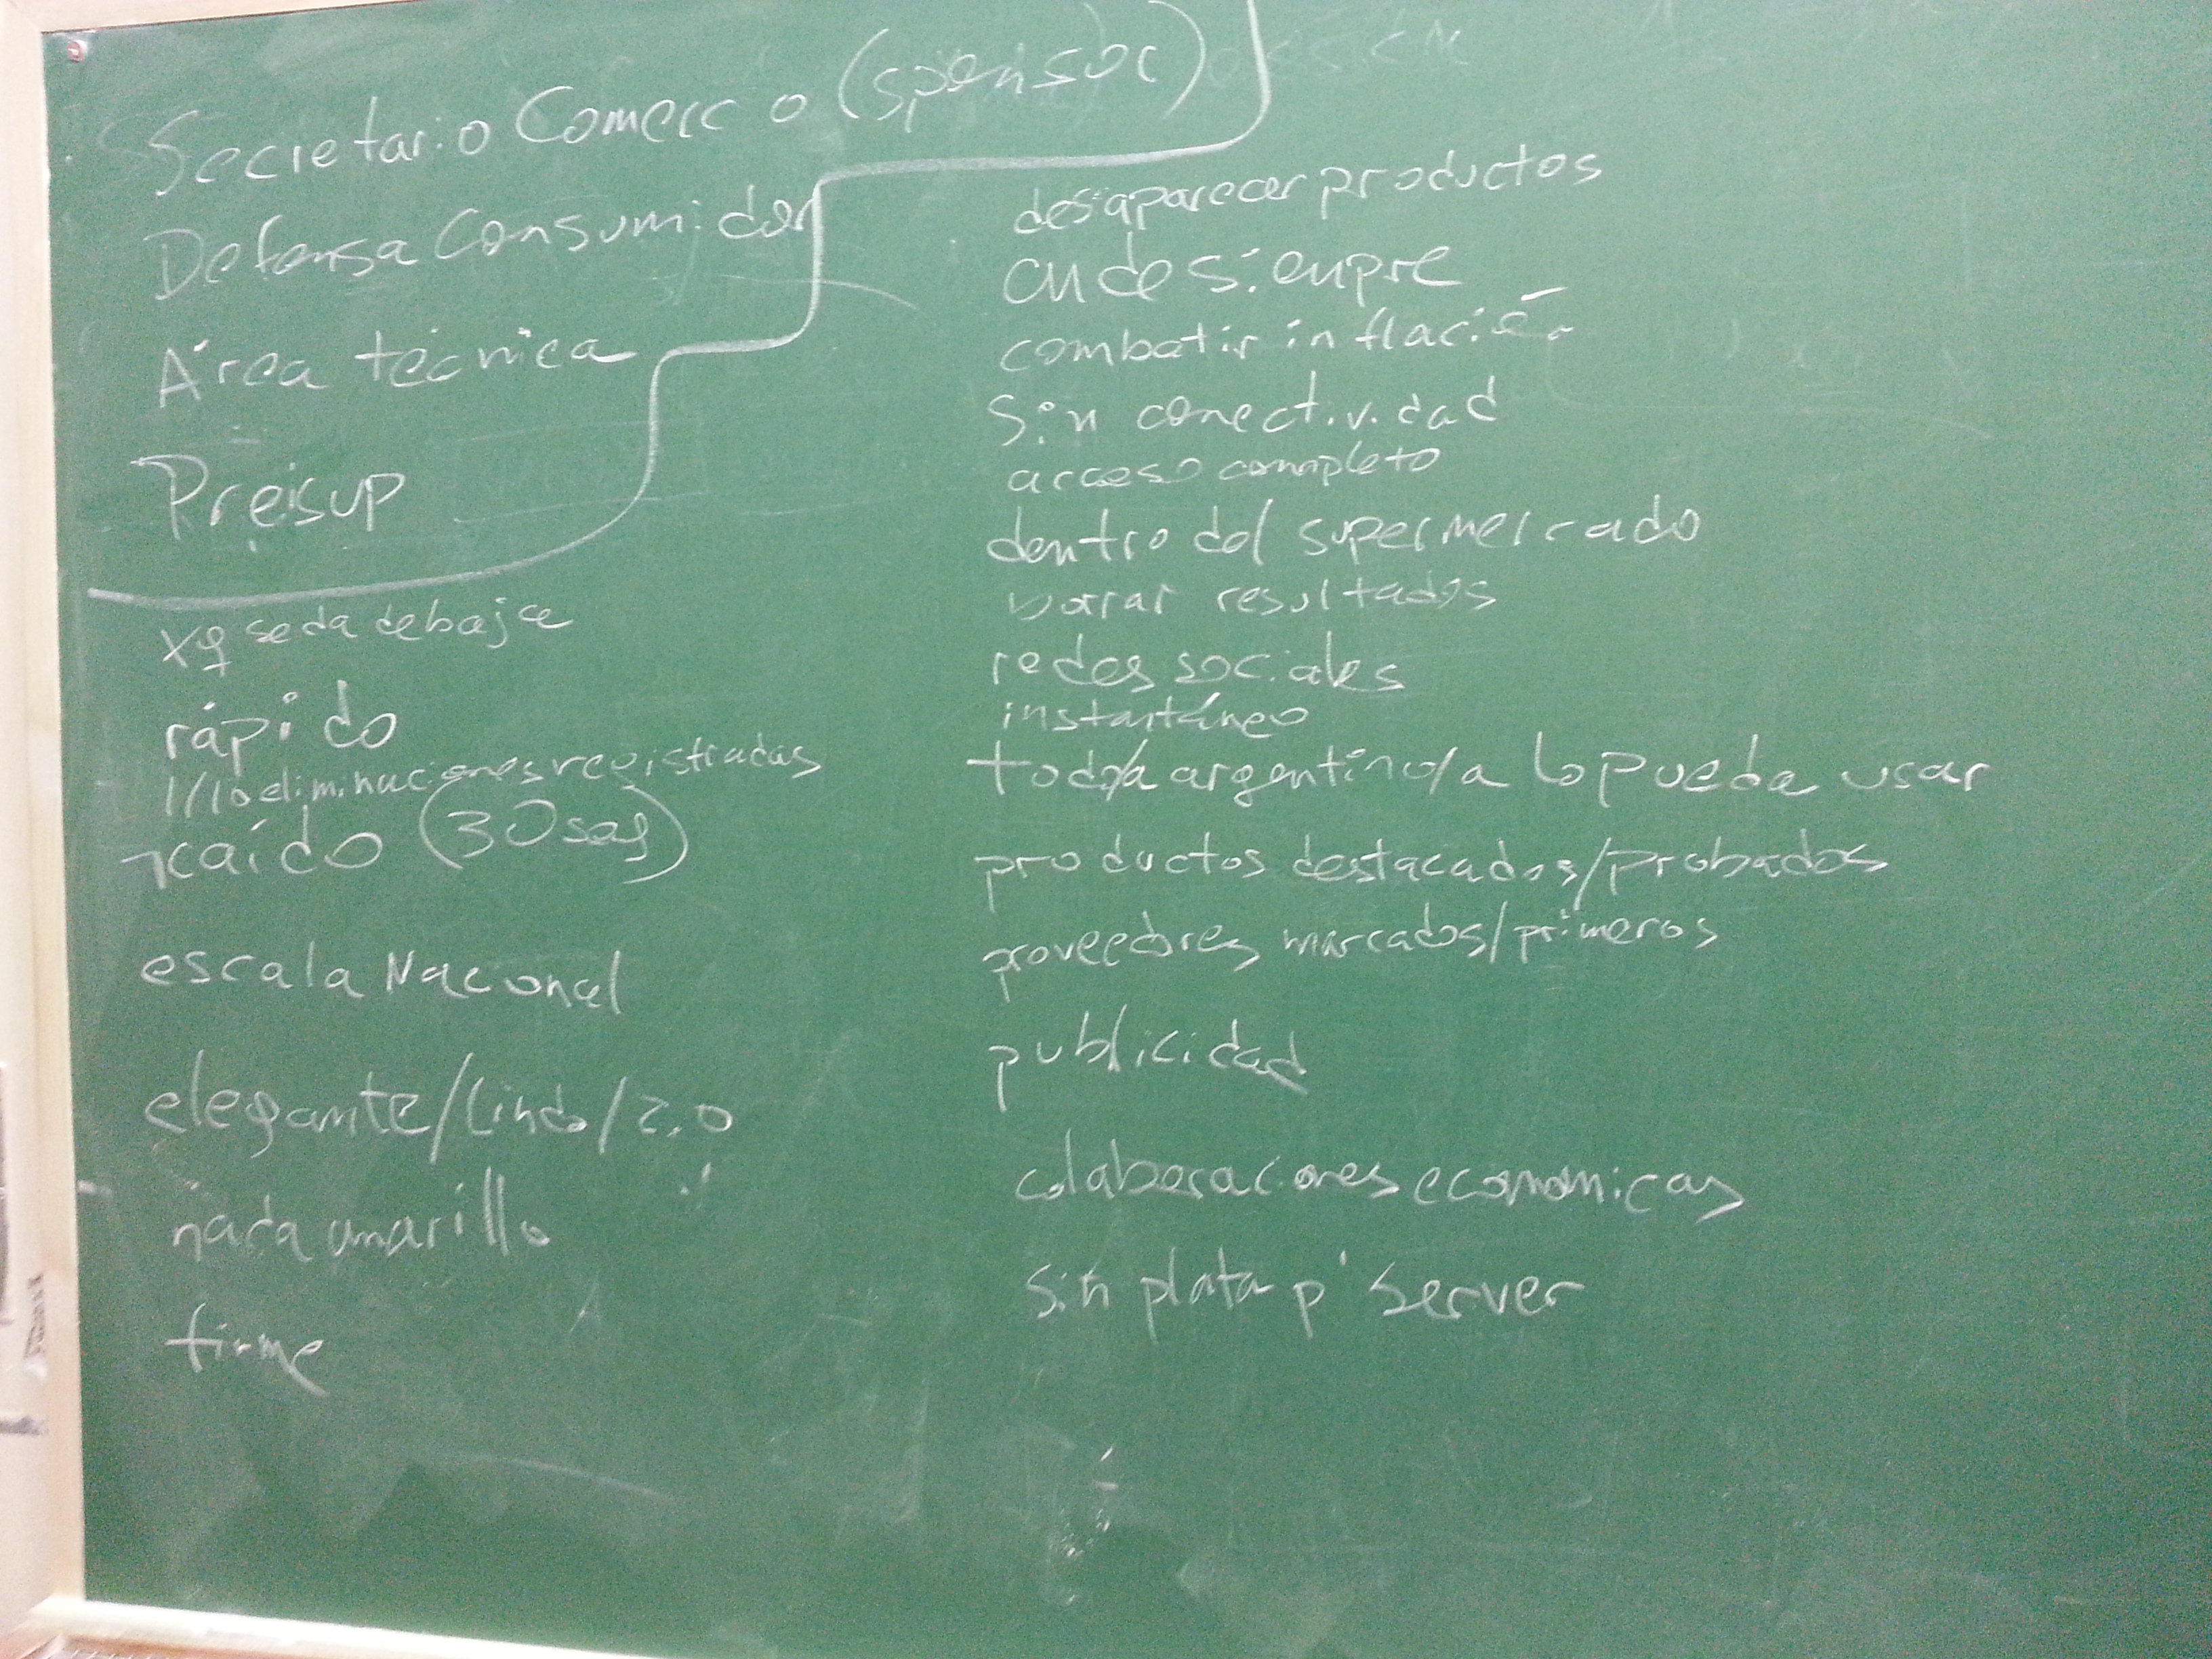 Secretario Comerc o (sponsor)
Defensa Consumidor
Área técnica
Presup
xq se da de baja
rápido
1/10 eliminaciones registradas
¬caído (30 seg)
escala Nacional
elegante/lindo/2.0
nada amarillo
firme
desaparecer productos
ande siempre
combatir inflació
Sin conectividad
acceso completo
dentro del supermercado
borrar resultados
redes sociales
instantáneo
todo/a argentino/a lo pueda usar
productos destacados/probados
proveedores marcados/primeros
publicidad
colaboraciones económicas
sin plata p' server